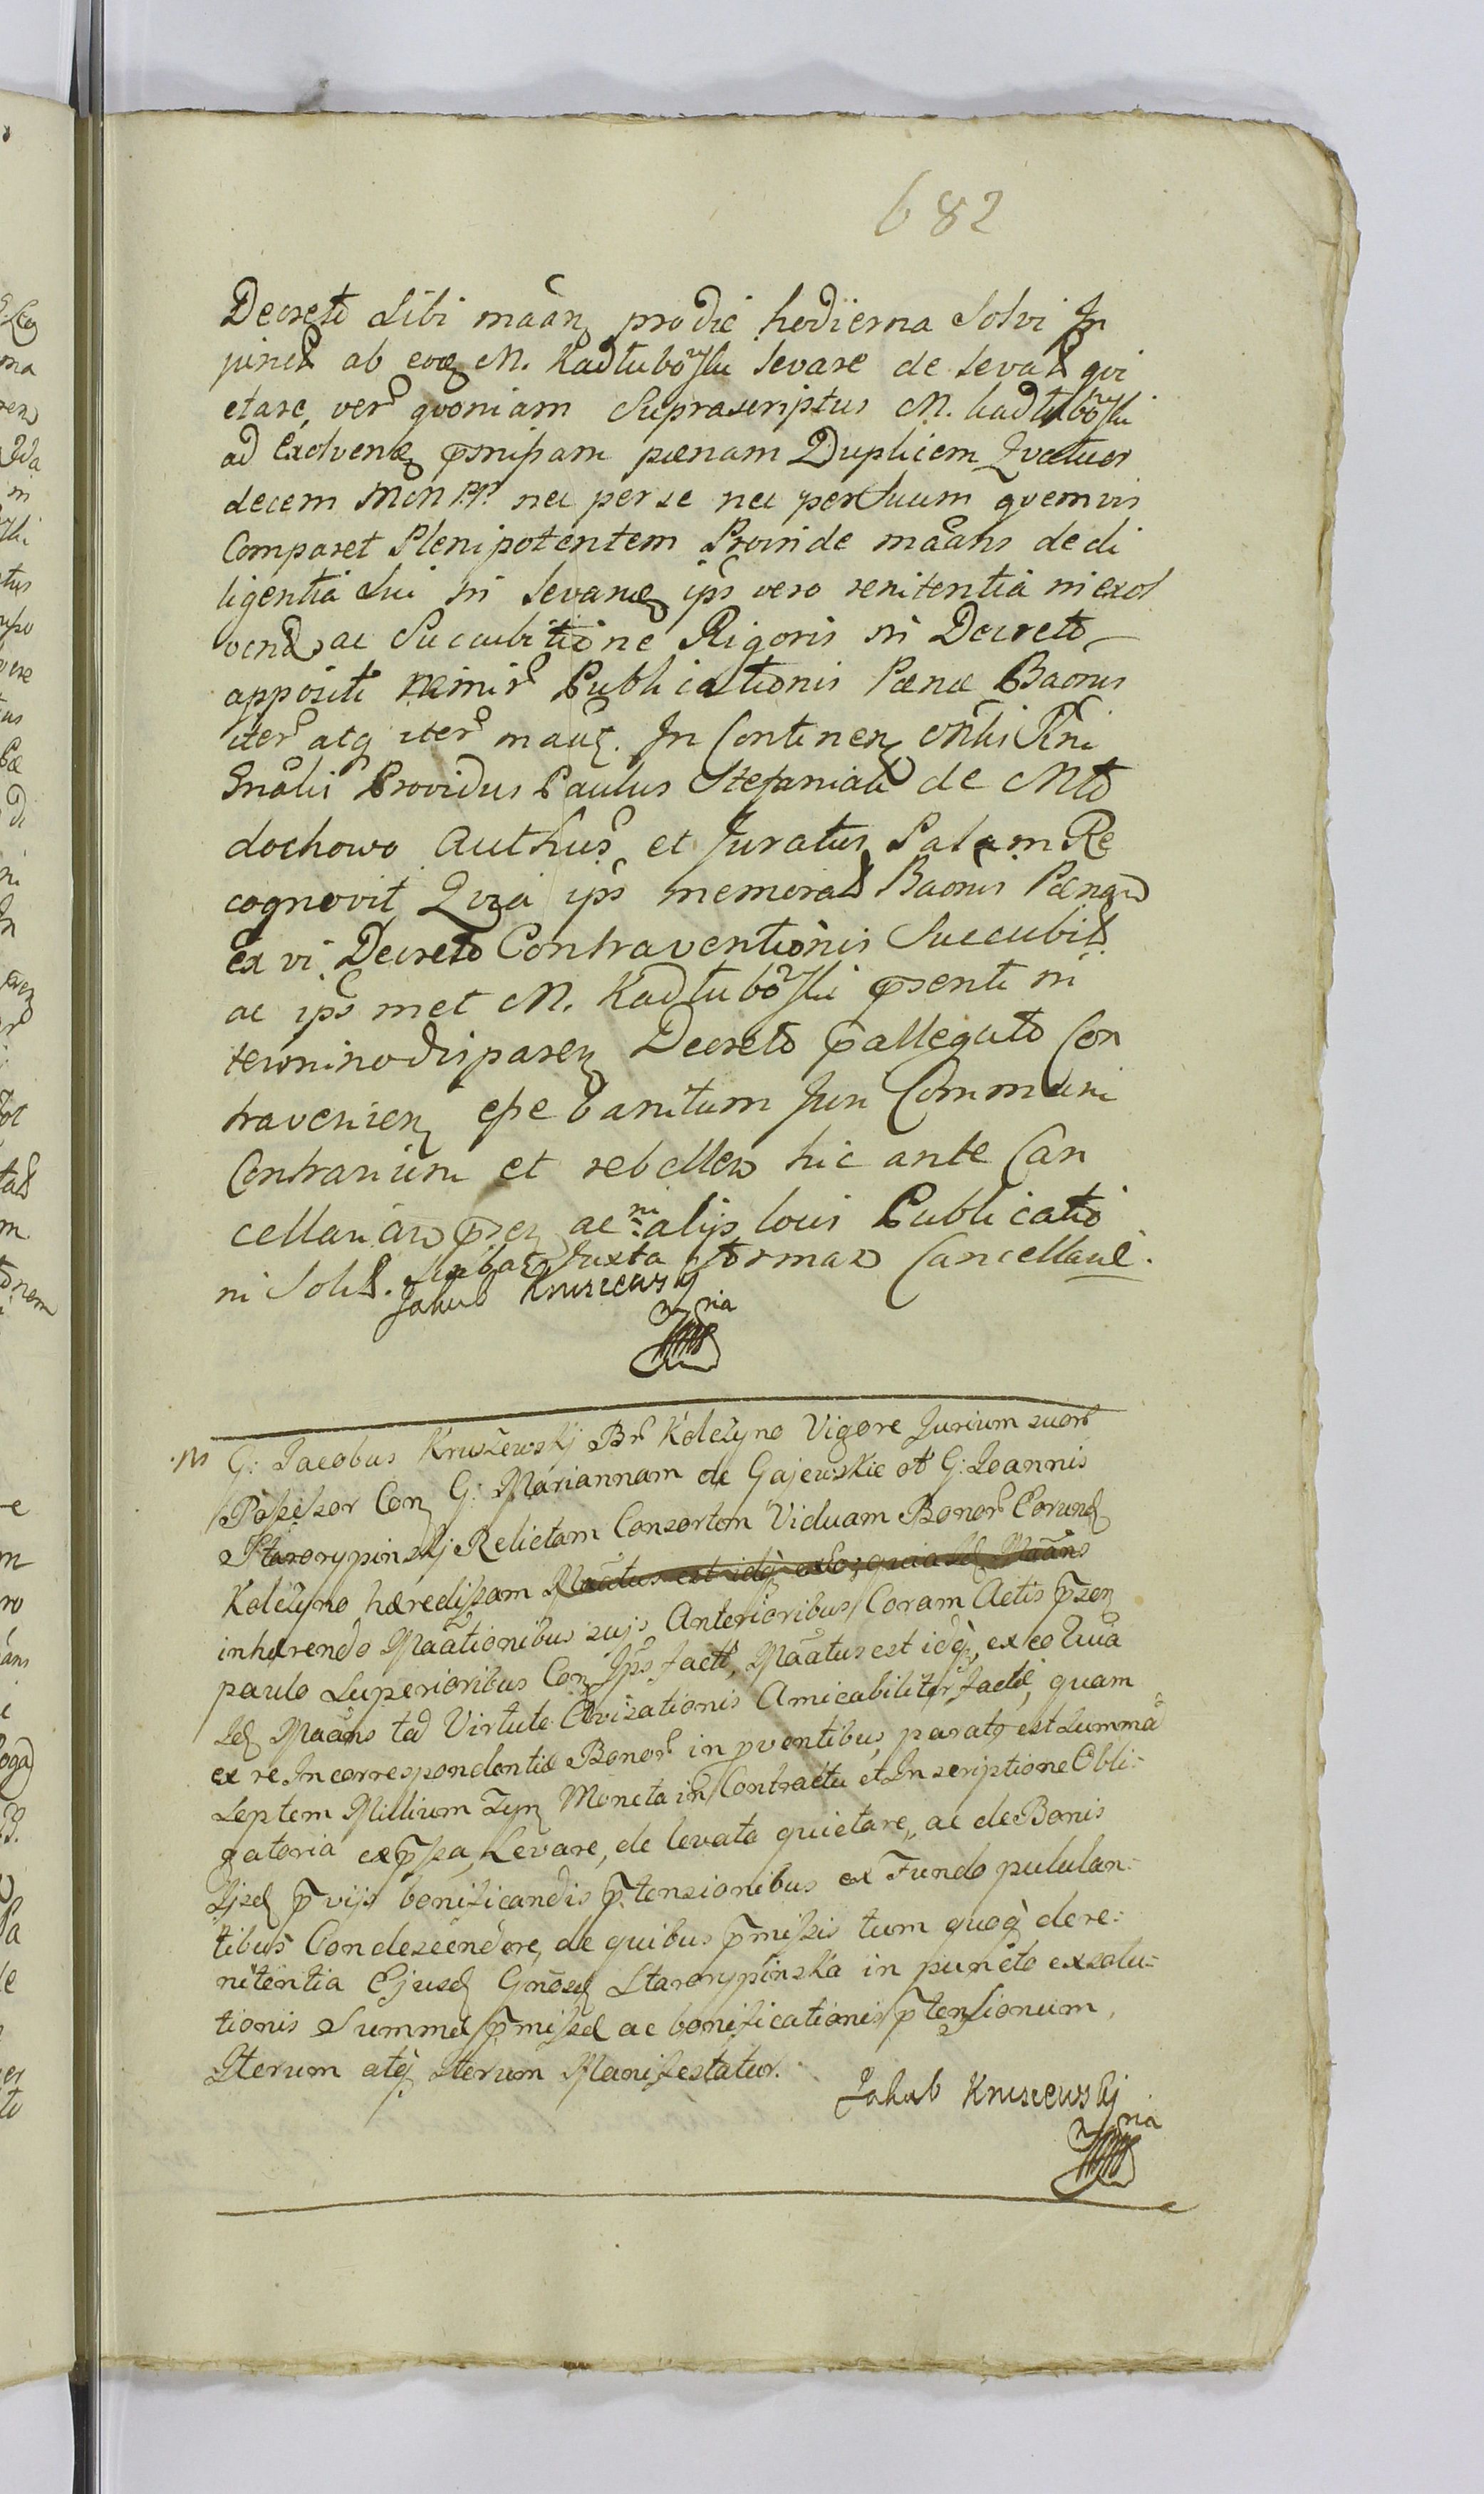 682
Decreto Sibi maãnʒ pro die hodierna Solvi In
junct ab eoʒ M. Kadłubo͠ski levare de levat qvi
etare, ver͠ qvoniam Suprascriptus M. Kadłubo͠ski
ad Exolvenʒ p͠mißam pœnam Duplicem Qvatuor
decem Mcn PP. nec per se nec per Suum qvemvis
Comparet Plenipotentem Proinde maãns de di
ligentia Sui in levanʒ ips͠ vero renitentia in exol
vend ac Succubitione Rigoris in Decreto
appositi nemir͠ Publicationis Pœnæ Baonis
iter͠ atq iter͠ maũʒ. In Continenʒ Mnlis Rni
Gnalis Providus Paulus Stefaniak de Mło
dochowo authus͠ et Juratus Palam Re
cognovit Qvia ips͠ memorat Baonis Pœnam
ex vi Decreto Contraventionis Succubit
ac ips͠ met M. Kadłubo͠ski p͠senti in
termino disparenʒ Decreto p͠allegato Con
travenienʒ eße banitum Juri Communi
Contrarium et rebellem hic ante Can
cellariam p͠senʒ ac in alijs locis Publicatio
ni Solit. Juxta formam Cancellariæ.
Jakub Krusxewsky
mria
M G: Jacobus Kruszewskj Br͠ Kolczyno Vigore Jurium suor͠
Poßeßor Conʒ G: Mariannam de Gajewskie ol͠ G: Joannis
Starorypinskj Relictam Consortem Viduam Bonor͠ Eorund
Kolczyno hæredißam Maãtus est idq̀ ex eo, quia Id Maãns
inhærendo Maãtionibus sujs Anterioribus Coram Actis p͠senʒ
paulo Superioribus Conʒ Ips͠ factt, Maãtus est idq̀, ex eo Quia
Id Maãns tad Virtute Avizationis Amicabiliter factæ, quam
ex re Incorrespondentiæ Bonor͠ in p͠ventibus, paratq est Summã
Septem Millium Tynʒ Moneta in Contractu et Inscriptione Obli-
gatoria exp͠ßa, Levare, de levata quietare, ac de Bonis
Ijsd p͠vijs bonificandis p͠tensionibus ex Fundo pululan-
tibus Condescendere, de quibus p͠mißis tum quoq̀ de re-
nitentia Ejusd Gnosæ Starorypinska in puncto exsolu-
tionis Summæ p͠mißæ ac bonificationis p͠tensionum,
Iterum atq̀ Iterum Manifestatur.
Jakub Krusxewskj
mria